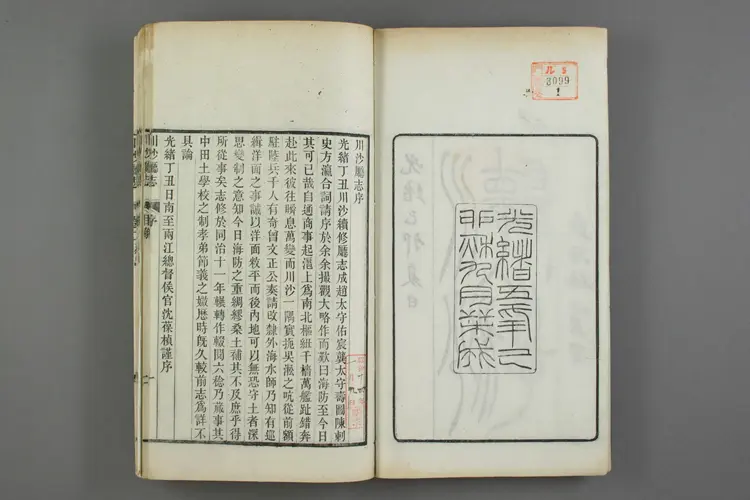 光緒五年己
卯秋九月栞成
8099
川沙廳志序
光緒丁丑川沙續修廳志成趙太守佑宸龔太守壽圖陳刺
史方瀛合詞請序於余余撮觀大略作而歎曰海防至今日
其可已哉自通商事起滬上爲南北樞紐千檣萬艦趾錯奔
赴此來彼往瞬息萬變而川沙一隅實扼吳淞之吭從前額
駐陸兵千人有奇曾文正公奏請改隸外海水師乃知有巡
緝洋面之事誠以洋面敉平而後內地可以無恐守土者深
思變制之意知今日海防之重綢繆桑土補其不及庶乎得
所從事矣志修於同治十一年輾轉作輟閱六稔乃蕆事其
中田土學校之制孝弟節義之媺歷時旣久較前志爲詳不
具論
光緒丁丑日南至兩江總督侯官沈葆楨謹序
川沙廳志